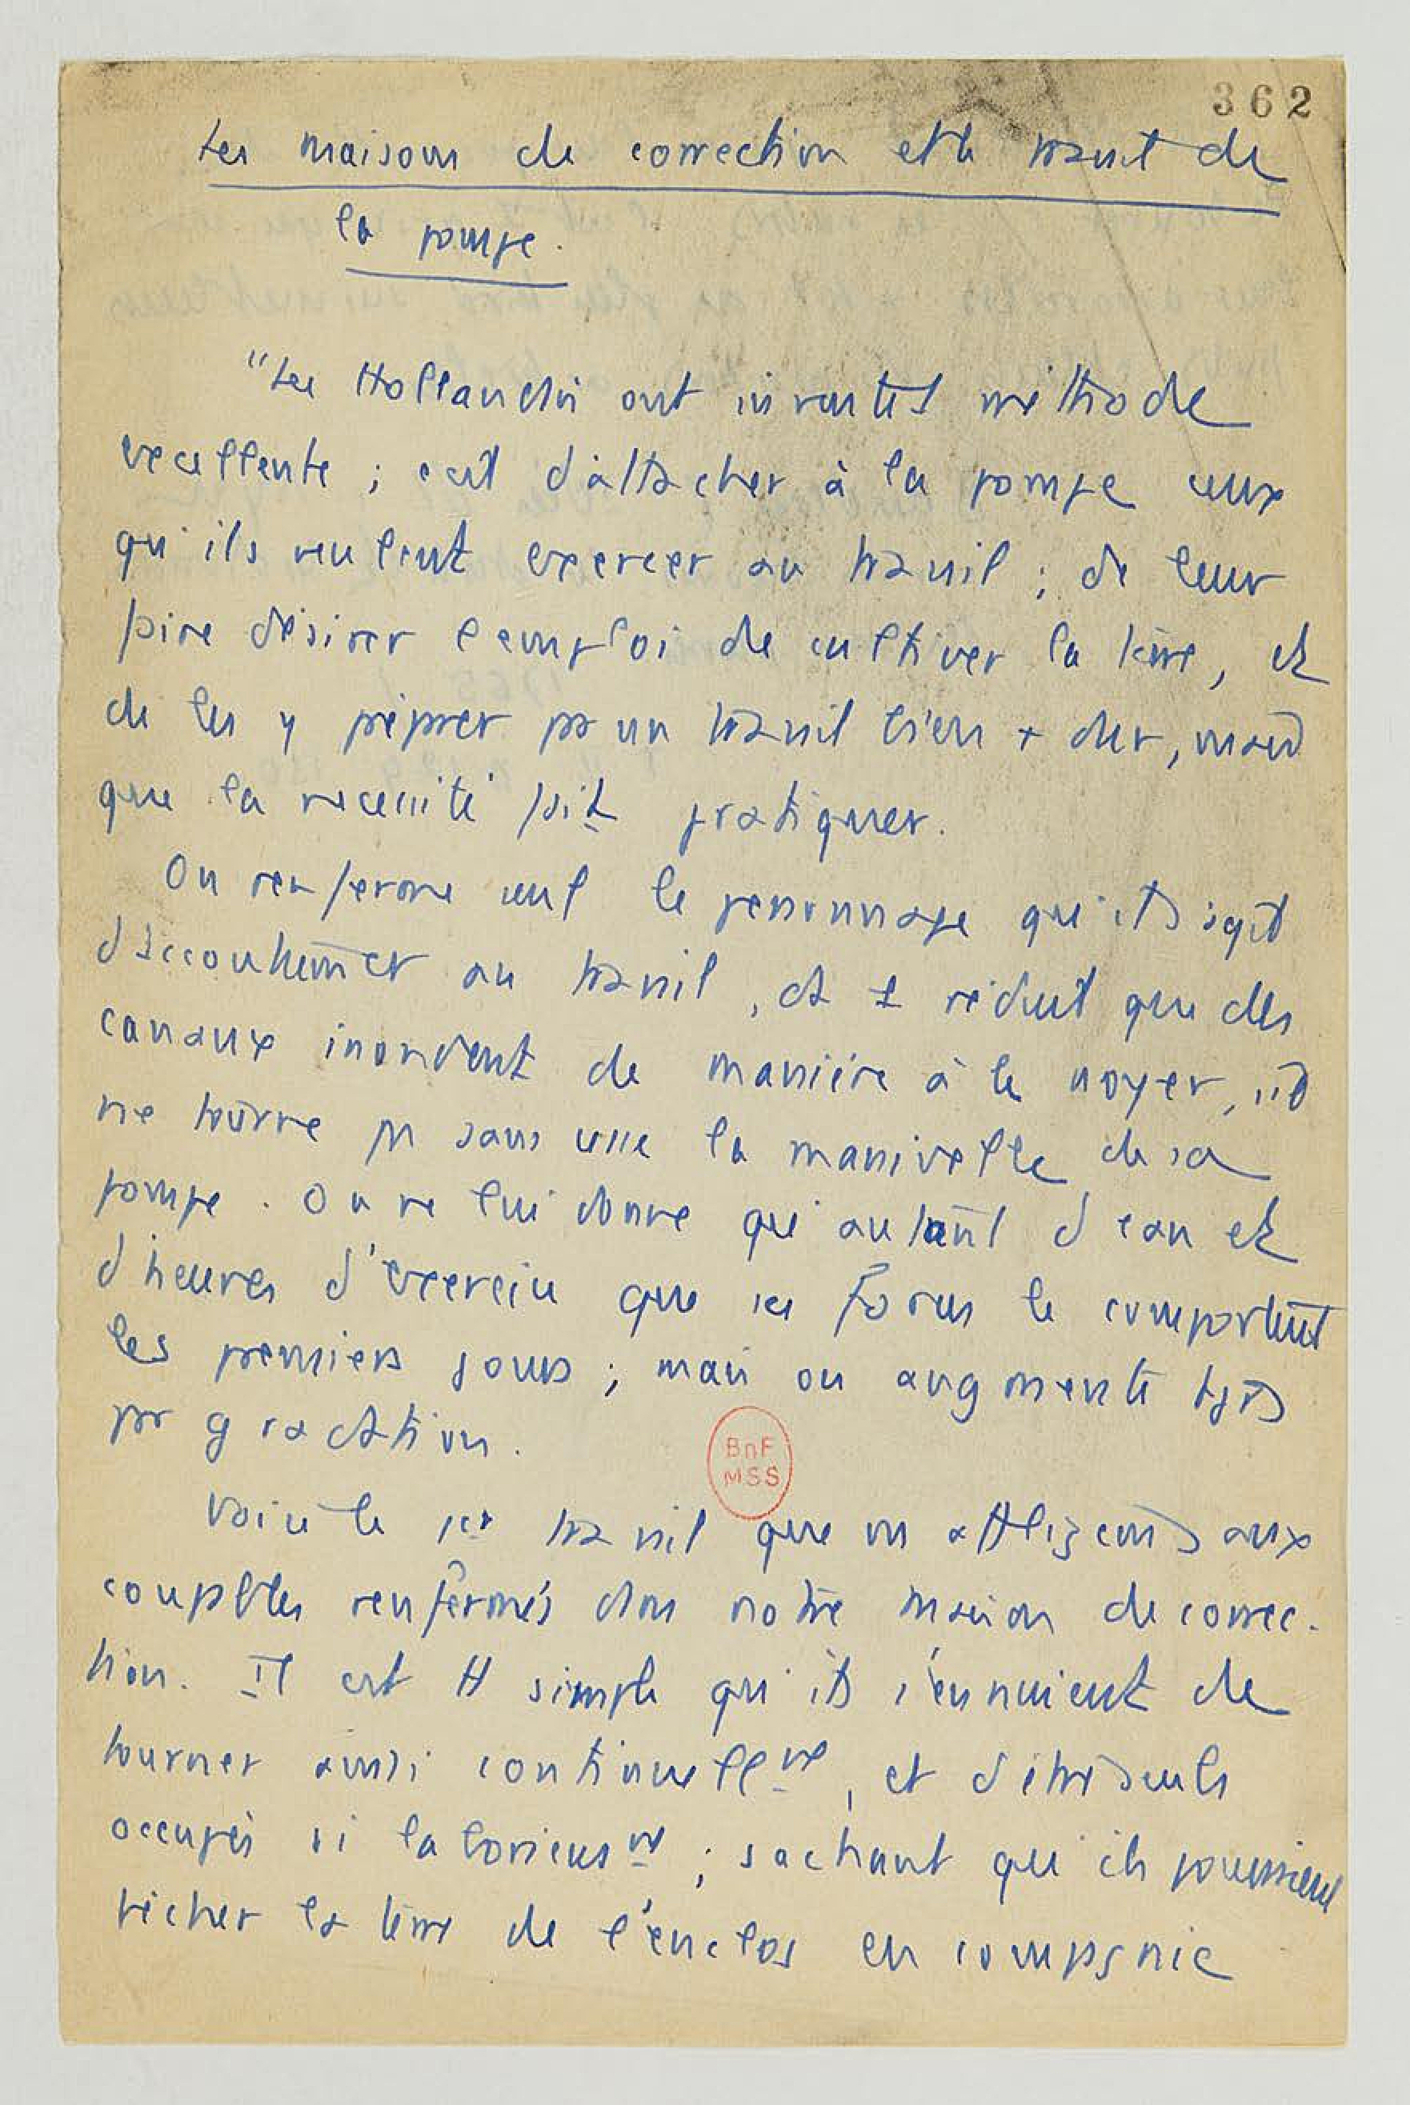 362
Les maisons de correction et le travail de
la pompe.
"Les Hollandais ont inventé méthode
excellente ; c'est d'attacher à la pompe ceux
qu'ils veulent exercer au travail ; de leur
faire désirer l'emploi de cultiver la terre, et
de les y préparer par un travail bien + dur, mais
que la nécessité fait pratiquer.
On renferme seul le personnage qu'il s'agit
d'accoutumer au travail, ds 1 réduit que des
canaux inondent de manière à le noyer, s'il
ne tourne pas sans cesse la manivelle de sa
pompe. On ne lui donne qu'autant d'eau et
d'heures d'exercice que ses forces le comportent
les premiers jours ; mais on augmente tjrs
par gradation.
Voici le 1er travail que on infligerait aux
coupables renfermés dans notre maison de correc-
tion. Il est tt simple qu'ils s'ennuient de
tourner ainsi continuellmt, et d'être seuls
occupés si laborieusmt ; sachant qu'ils pourraient
bêcher la terre de l'enclos en compagnie
BnF
MSS